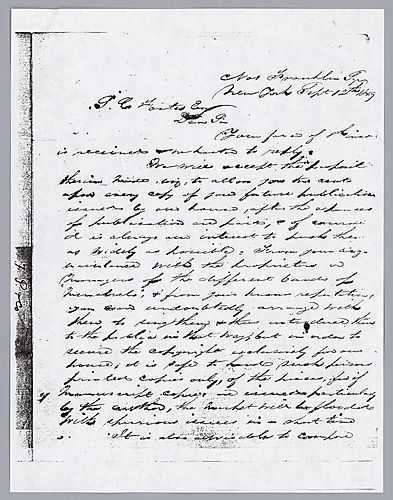 No 1 Franklin Sq
New York Sept 12th 1849
S. C. Foster Esq
Dear Sir
Your favor of
is received & we hasten to reply.
We will accept the proposition
therein made, viz, to allow you two cents
upon every copy of your future publications
issued by our house, after the expenses
of publication are paid, & of course
it is always our interest to push them
as widely as possible. From your acq-
uaintance with the proprietors or
managers of the different bands of
Minstrels, & from your known reputation,
you can undoubtedly arrange with
them to sing them & thus introduce them
to the public in that way, but in order to
secure the copyright exclusively for our
house, it is safe to hand such persons
printed copies only, of the pieces, for if
manuscript copies are issued particularly
by the author, the market will be flooded
with spurious issues in a short time
It is also advisable to compose